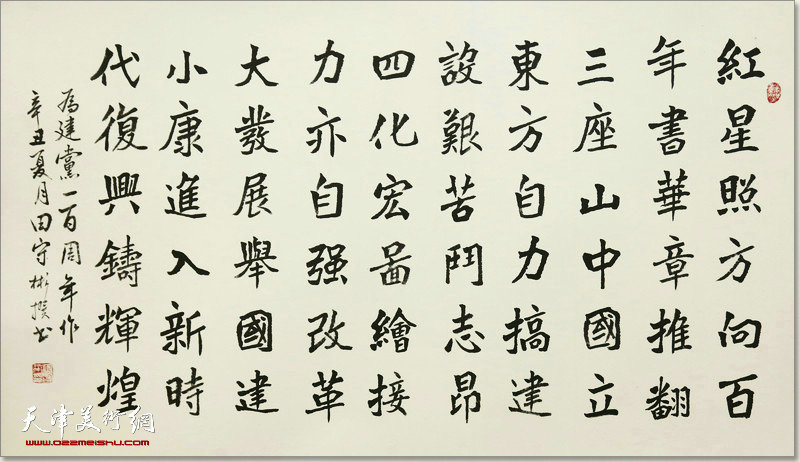 紅星照方向百
年書華章推翻
三座山中國立
東方自力搞建
設艱苦鬥志昂
四化宏啚繪接
力亦自强改革
大發展舉國建
小康進入新時
代復興鑄輝煌
為建黨一百周年作
辛丑夏月田守彬撰书
天津美術網
www.022meishu.com